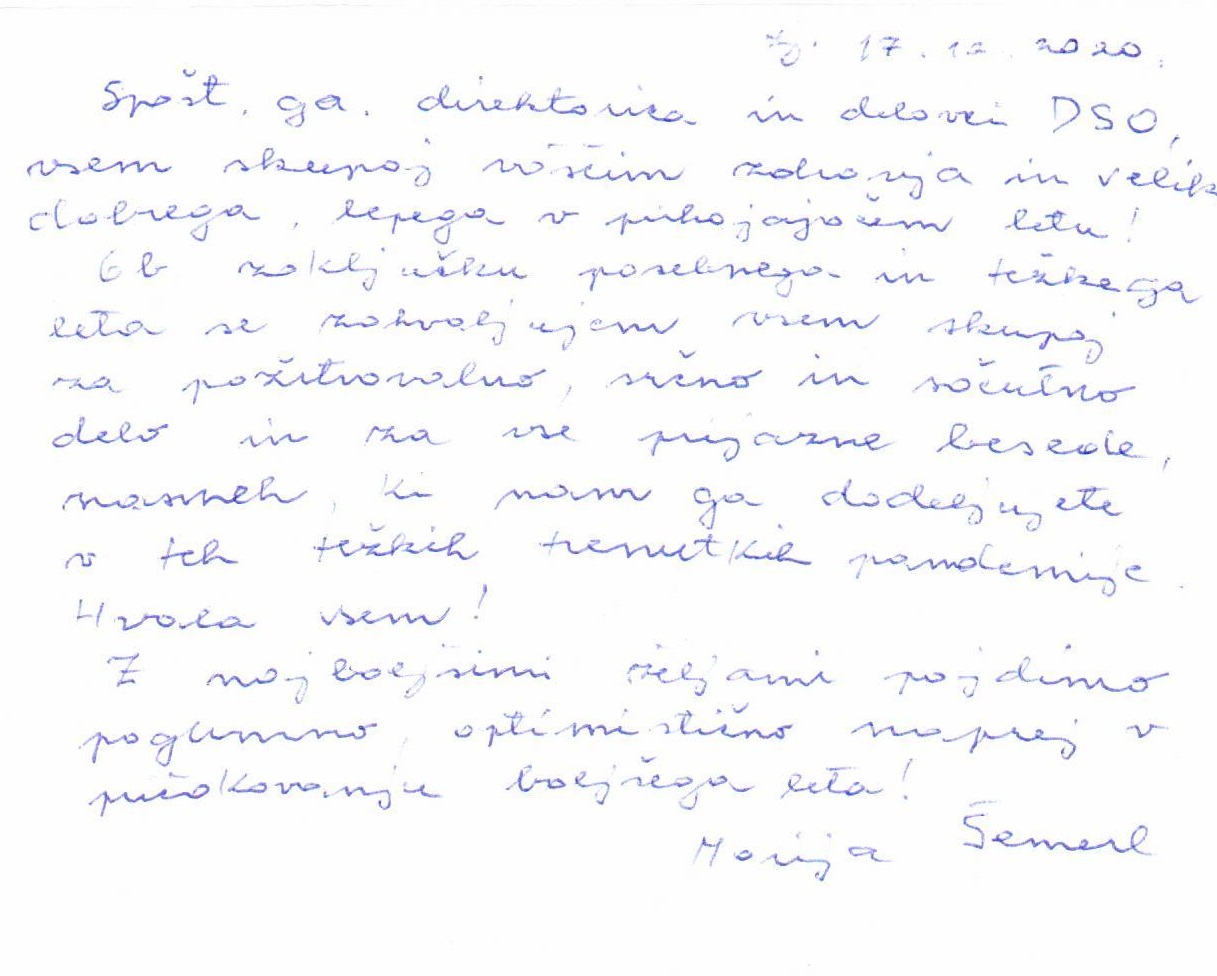 Lj. 17.12.2020.
Spošt. ga. direktorica in delavci DSO,
vsem skupaj voščim zdravja in velik
dobrega, lepega v prihajajočem letu!
Ob zaključku posebnega in težkega
leta se zahvaljujem vsem skupaj
za požrtvovalno, srčno in sočutno
delo in za vse prijazne besede,
nasmeh, ki nam ga dodeljujete
v teh težkih trenutkih pandemije.
Hvala vsem!
Z najboljšimi željami pojdimo
pogumno, optimistično naprej v
pričakovanju boljšega leta!
Marija Šemerl